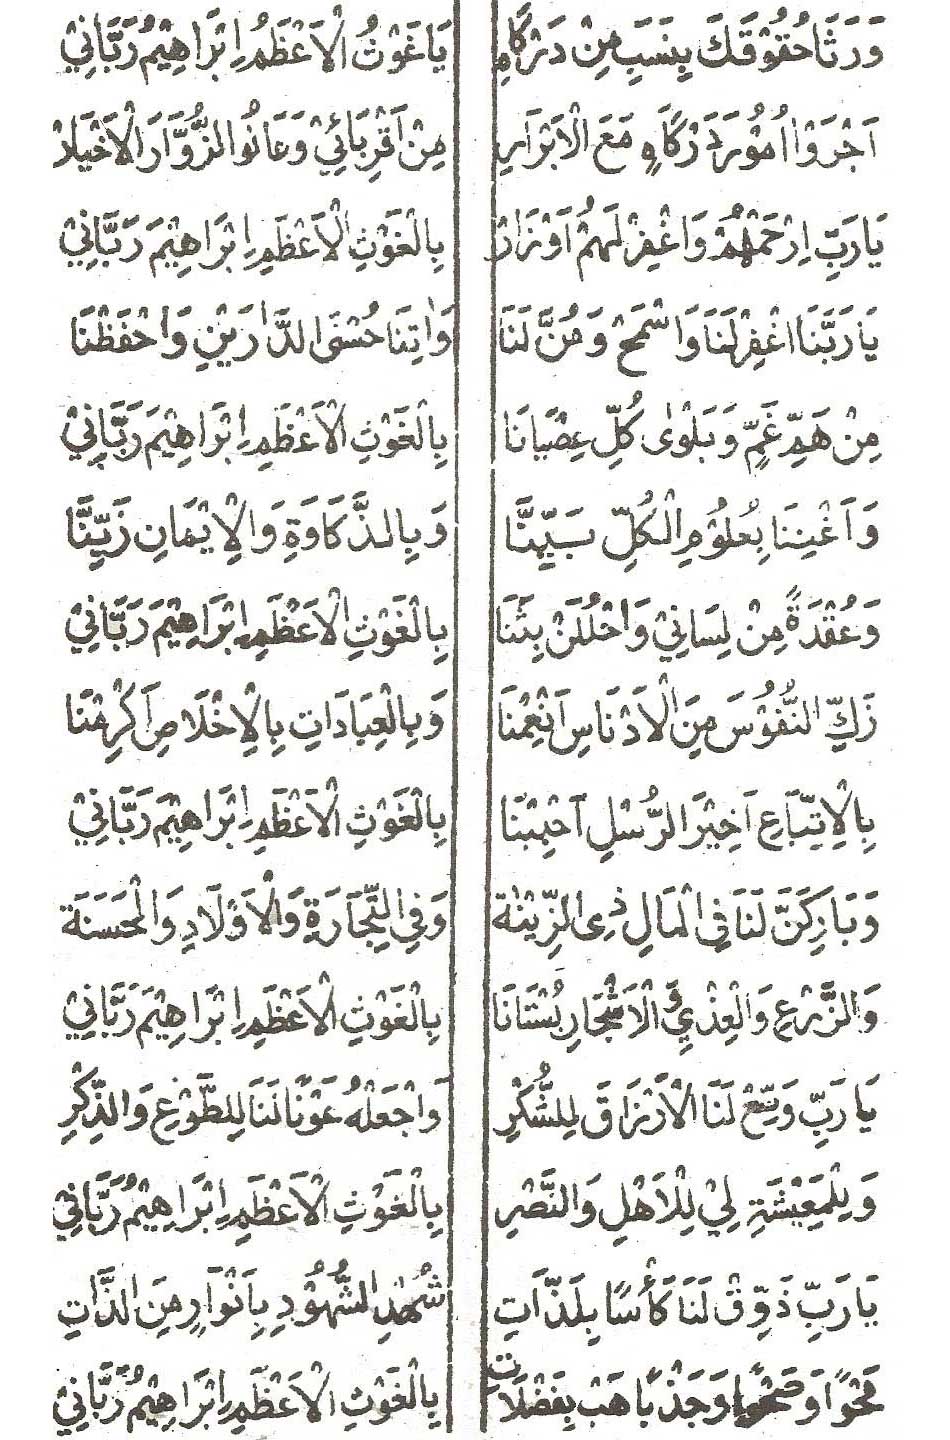 وَرَثَا حُقُوْقَكَ بِنَسَبٍ مِنْ دَرْكَاهِ يَا غَوْثُ الْاَعْظَمُ اِبْرَاهِيْمُ رَبَّانِيْ
اَجْرَوْا اُمُوْرَ دَرْكَاهٍ مَعَ الْاَبْرَارِ مِنْ اَقْرِبَائِيْ وَعَانُوا الزُّوَّارَ الْاَخْيَارْ
يَارَبِّ اِرْحَمْهُمْ وَاغْفِرْ لَهُمْ اَوْزَارْ بِالْغَوْثِ الْاَعْظَمِ اِبْرَاهِيْمَ رَبَّانِيْ
يَارَبَّنَا اغْفِرْلَنَا وَاسْمَحْ وَمُنَّ لَنَا وَاٰتِنَا حُسْنَى الدَّارَيْنِ وَاحْفَظْنَا
مِنْ هَمِّ غَمٍّ وَبَلْوٰى كُلِّ عِصْيَانَا بِالْغَوْثِ الْاَعْظَمِ اِبْرَاهِيْمَ رَبَّانِيْ
وَاَغْنِنَا بِعُلُوْمِ الْكُلِّ سَيِّنَّا وَبِالذَّكَاوَةِ وَالْاِيْمَانِ زَيِّنَّا
وَعُقْدَةً مِنْ لِسَانِيْ وَاحْلُلَنْ بِثَنَا بِالْغَوْثِ الْاَعْظَمِ اِبْرَاهِيْمَ رَبَّانِيْ
زَكِّ النُّفُوْسَ مِنَ الْاَدْنَاسِ اَنْعِمْنَا وَبِالْعِبَادَاتِ بِالْاِخْلَاصِ اَكْرِمْنَا
بِالْاِتِّبَاعِ اَخِيْرَ الرُّسْلِ اَحْبِبْنَا بِالْغَوْثِ الْاَعْظَمِ اِبْرَاهِيْمَ رَبَّانِيْ
وَبَارِكَنَّ لَنَا فِي الْمَالِ ذِى الزِّيْنَة وَفِي التِّجَارَةِ وَالْاَوْلَادِ وَالْحَسَنَة
وَالزَّرْعِ وَالْعِذْيِ وَالْاَشْجَارِ بُسْتَانَا بِالْغَوْثِ الْاَعْظَمِ اِبْرَاهِيْمَ رَبَّانِيْ
يَارَبِّ وَسِّعْ لَنَا الْاَرْزَاقَ لِلشُّكْرِ وَاجْعَلْهُ عَوْنًا لَنَا لِلطَّوْعِ وَالذِّكْرِ
وَلِلْمَعِيْشَةِ لِيْ لِلْاَهْلِ وَالنَّصْرِ بِالْغَوْثِ الْاَعْظَمِ اِبْرَاهِيْمُ رَبَّانِيْ
يَارَبِّ ذَوِّقْ لَنَا كَأْسًا بِلَذَّاتِ شُهْدِ الشُّهُوْدِ بِاَنْوَارٍ مِنَ الذَّاتِ
مَحْوًا وَصَحْوًا وَجَذْبًا هَبْ بِفَضْلَاتِ بِالْغَوْثِ الْاَعْظَمِ اِبْرَاهِيْمُ رَبَّانِيْ